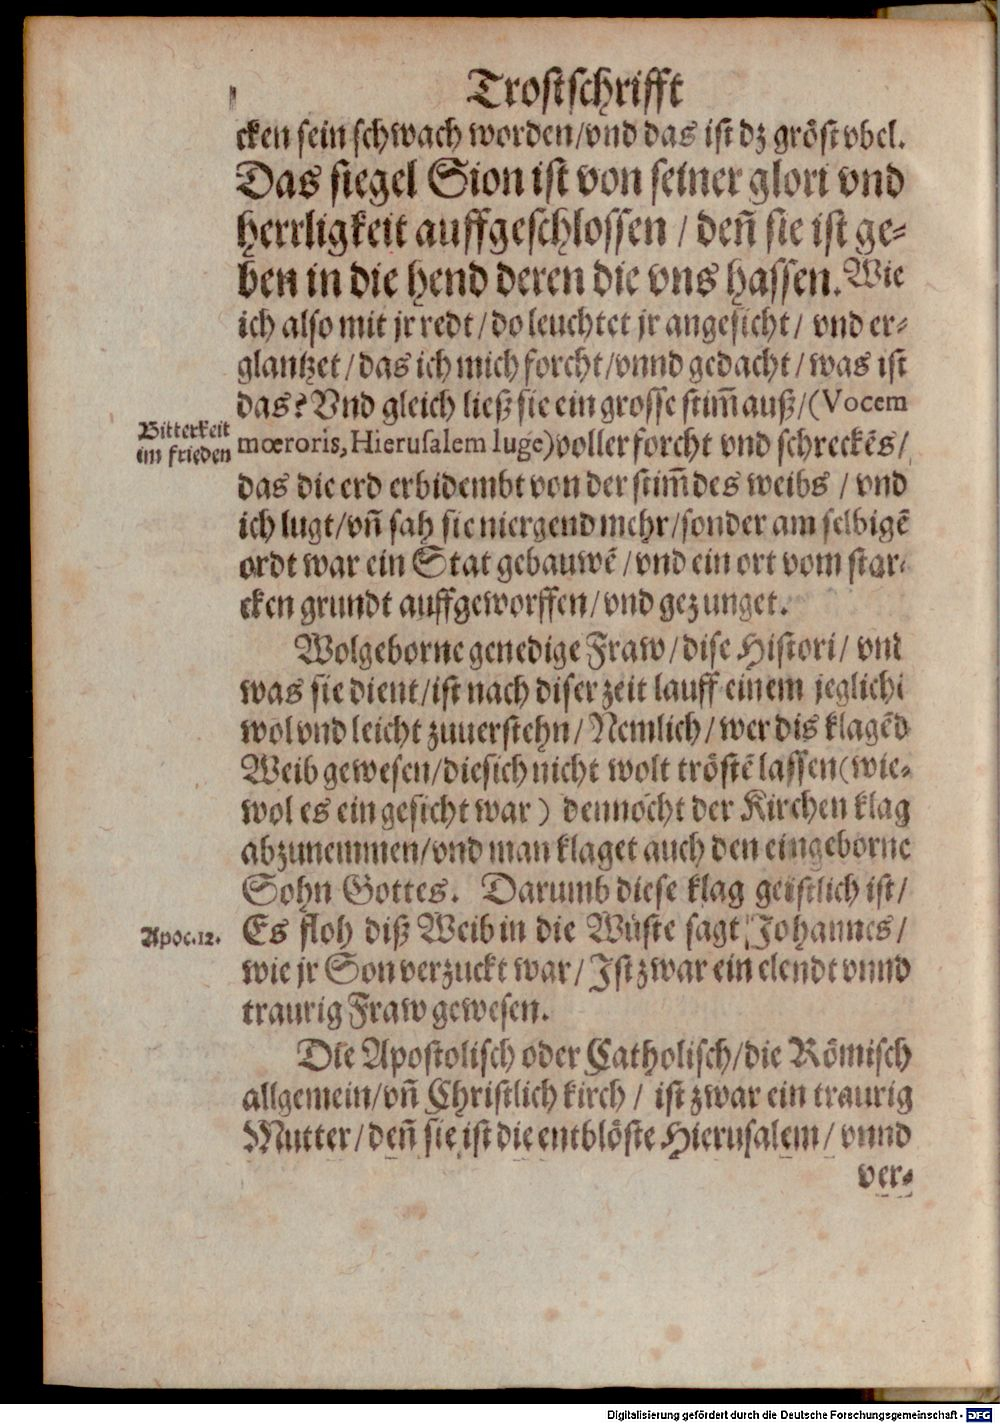 Trostschrifft
cken sein schwach worden/vnd das ist dz gröst vbel.
Das siegel Sion ist von seiner glori vnd
herrligkeit auffgeschlossen / deñ sie ist ge-
ben in die hend deren die vns hassen. Wie
ich also mit jr redt/do leuchtet jr angesicht/ vnd er-
glantzet/das ich mich forcht/vnnd gedacht/was ist
das? Vnd gleich ließ sie ein grosse stim̃ auß/(Vocem
Bitterkeit
im frieden
mœroris, Hierusalem luge)voller forcht vnd schreckẽs/
das die erd erbidembt von der stim̃ des weibs / vnd
ich lugt/vñ sah sie niergend mehr/sonder am selbigẽ
ordt war ein Stat gebauwẽ/vnd ein ort vom star-
cken grundt auffgeworffen/vnd gezunget.
Wolgeborne genedige Fraw/dise Histori/ vnd
was sie dient/ist nach diser zeit lauff einem jeglichẽ
wol vnd leicht zuuerstehn/Nemlich/wer dis klagẽd
Weib gewesen/die sich nicht wolt tröstẽ lassen(wie-
wol es ein gesicht war) dennocht der Kirchen klag
abzunemmen/vnd man klaget auch den eingeborne
Sohn Gottes. Darumb diese klag geistlich ist/
Apoc.12.
Es floh diß Weib in die Wüste sagt Johannes/
wie jr Son verzuckt war/Ist zwar ein elendt vnnd
traurig Fraw gewesen.
Die Apostolisch oder Catholisch/die Römisch
allgemein/vñ Christlich kirch / ist zwar ein traurig
Mutter/deñ sie ist die entblöste Hierusalem/ vnnd
ver-
Digitalisierung gefördert durch die Deutsche Forschungsgemeinschaft - DFG